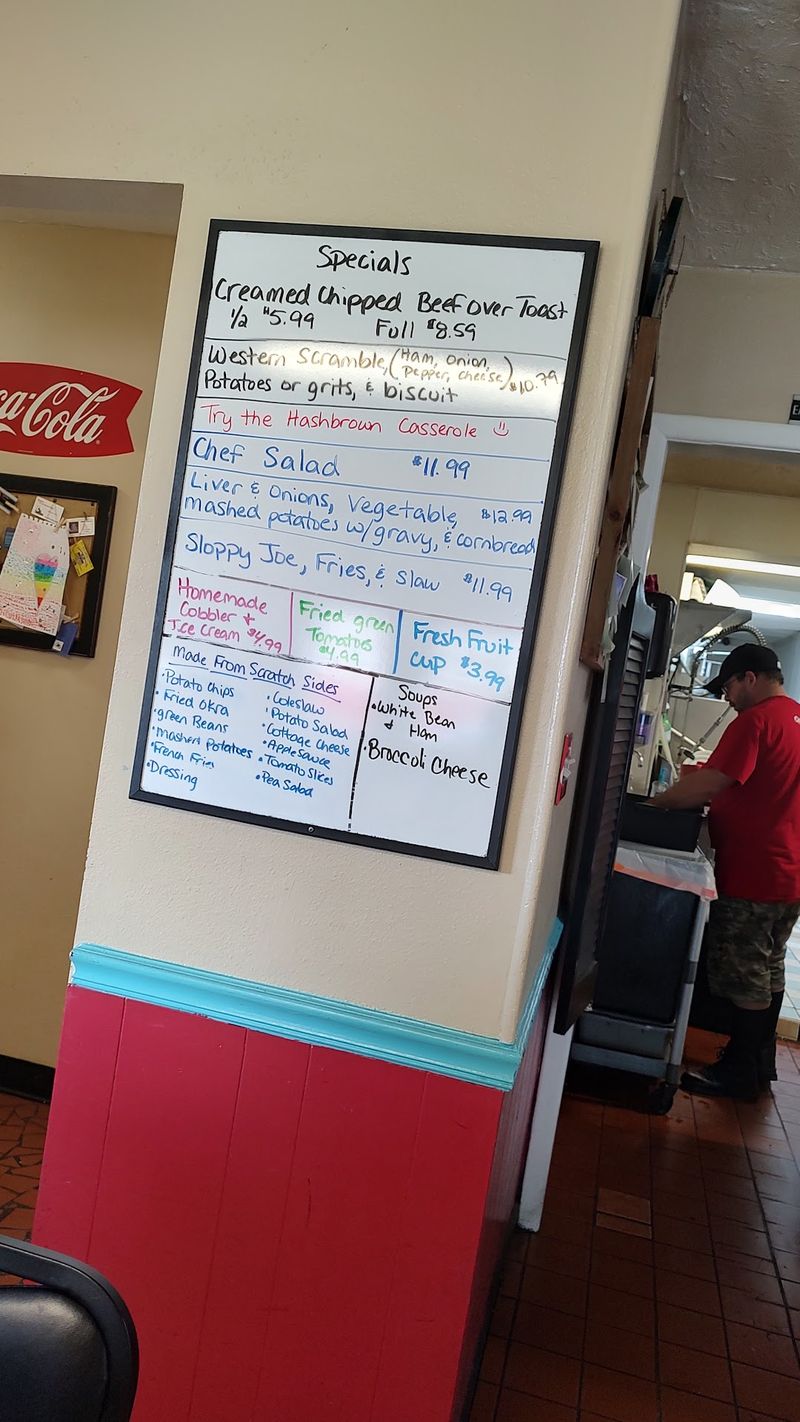 Specials
Creamed Chipped Beef over Toast
1/2 $5.99 Full $8.59
Western Scramble, (Ham, onion,
pepper, cheese) $10.79
Potatoes or grits, & biscuit
Try the Hashbrown Casserole
Chef Salad $11.99
Liver & Onions, Vegetable, $12.99
mashed potatoes w/gravy, & cornbread
Sloppy Joe, Fries, & Slaw $11.99
Homemade
Cobbler +
Ice Cream $4.99
Fried green
Tomatoes
$4.99
Fresh Fruit
cup $3.99
Made From Scratch Sides
•Potato Chips
•Fried Okra
•green Beans
•Mashed Potatoes
•French Fries
•Dressing
•Coleslaw
•Potato Salad
•Cottage Cheese
•Apple Sauce
•Tomato Slices
•Pea Salad
Soups
•White Bean
& Ham
•Broccoli Cheese
ca-Cola